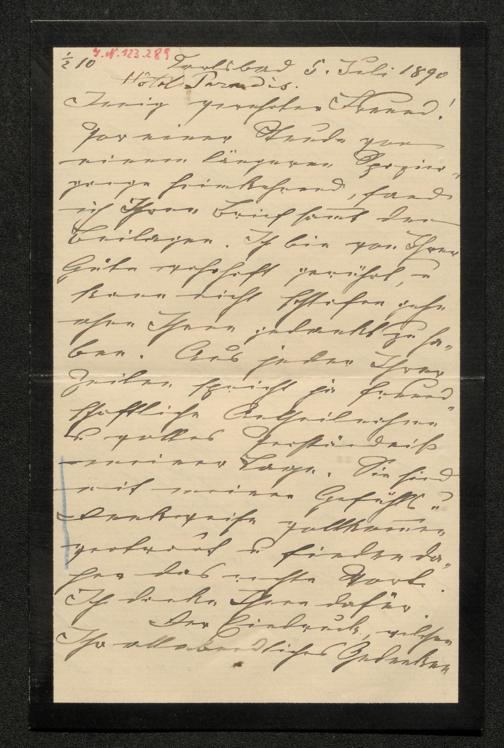 ½10 J.N.123.289 Karlsbad 5. Juli 1890
Hôtel Paradis.
Innig verehrter Freund!
Vor einer Stunde von
einem längeren Spazier-
gange heimkehrend, fand
ich Ihren Brief samt den
Beilagen. Ich bin von Ihrer
Güte wahrhaft gerührt, u
kann nicht schlafen gehn
ohne Ihnen gedankt zu ha-
ben. Aus jeder Ihrer
Zeilen spricht ja freund-
schaftliche Antheilnahme
u volles Verständniß
meiner Lage. Sie sind
mit meiner Gefühls- u
Denkweise vollkommen
vertraut u finden da-
her das rechte Wort.
Ich danke Ihnen dafür.
Der Eindruck, welchen
Ihr allabendliches Gedenken